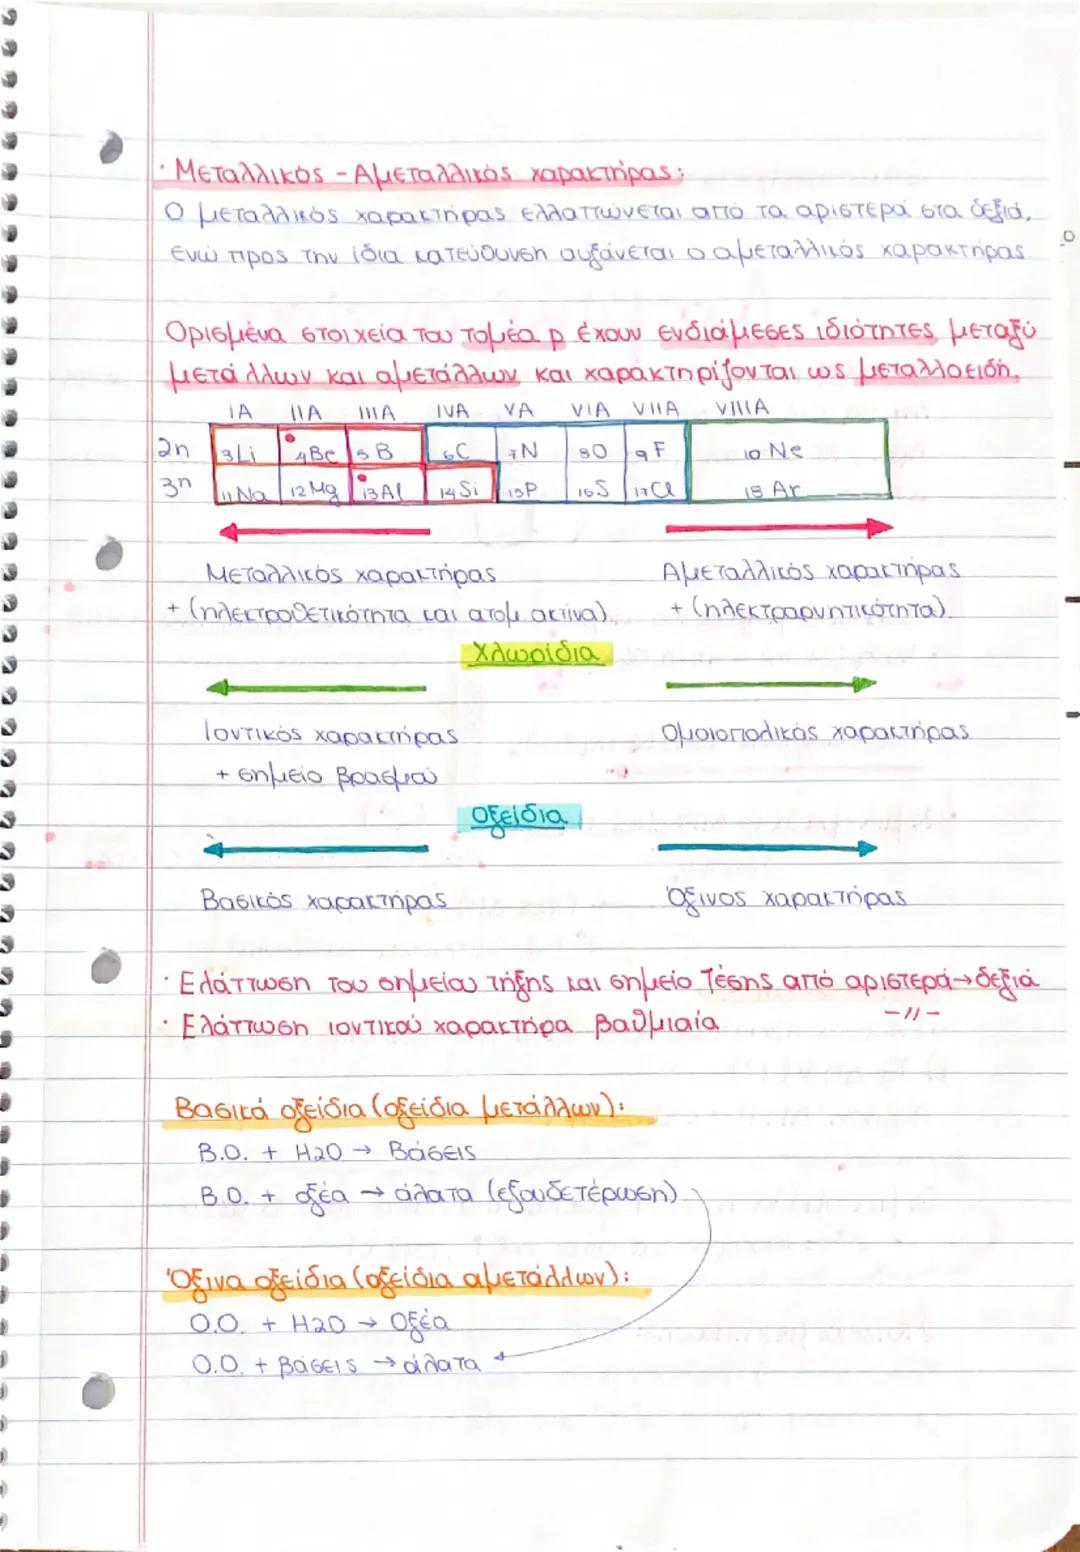 · Μεταλλικός - Αμεταλλικός χαρακτήρας:
Ο μεταλλικός χαρακτήρας ελλαττώνεται από τα αριστερά στα δεξιά,
ενώ προς την ίδια κατεύθυνση αυξάνεται ο αμεταλλικός χαρακτήρας
Ορισμένα στοιχεία του τομέα p έχουν ενδιάμεσες ιδιότητες μεταξύ
μετάλλων και αμετάλλων και χαρακτηρίζονται ως μεταλλοειδή.
IA IIA IIIA IVA VA VIA VIIA VIIIA
2η 3Li 4Be 5B 6C 7N 8O 9F 10Ne
3η 11Na 12Mg 13Al 14Si 15P 16S 17Cl 18Ar
Μεταλλικός χαρακτήρας Αμεταλλικός χαρακτήρας
+ (ηλεκτροθετικότητα και ατομ. ακτίνα) + (ηλεκτραρνητικότητα)
Χλωρίδια
Ιοντικός χαρακτήρας Ομοιοπολικός χαρακτήρας
+ σημείο βρασμού
Οξείδια
Βασικός χαρακτήρας Όξινος χαρακτήρας
· Ελάττωση του σημείου τήξης και σημείο τέσης από αριστερά→δεξιά
· Ελάττωση ιοντικού χαρακτήρα βαθμιαία -//-
Βασικά οξείδια (οξείδια μετάλλων):
Β.Ο. + H2O → Βάσεις
Β.Ο. + οξέα → άλατα (εξουδετέρωση)
Όξινα οξείδια (οξείδια αμετάλλων):
Ο.Ο. + H2O → Οξέα
Ο.Ο. + βάσεις → άλατα